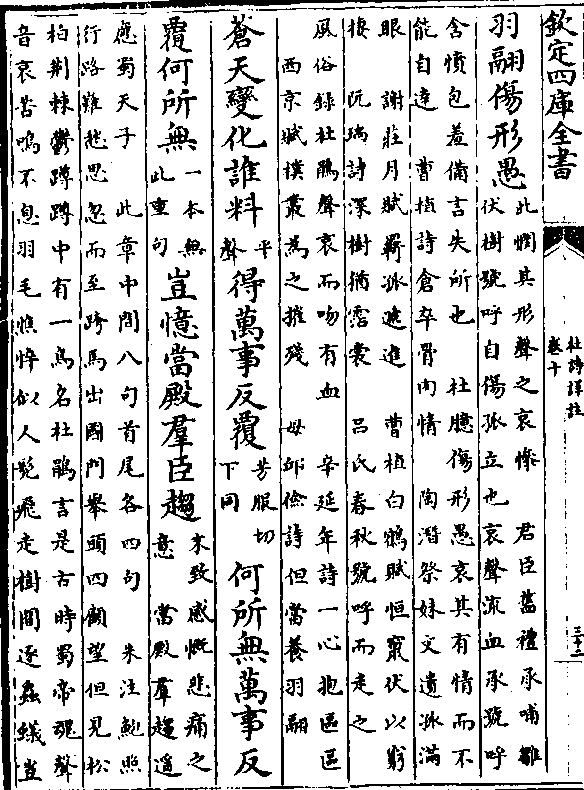 欽定四庫全書
杜詩詳註
卷十
三十二
羽翮傷形愚
此憫其形聲之哀慘 君臣舊禮承哺雛
伏樹號呼自傷孤立也哀聲流血承號呼
含憤包羞備言失所也 杜臆傷形愚哀其有情而不
能自達 曹植詩倉卒骨肉情 陶潛祭妹文遺孤滿
眼 謝莊月賦羇孤遞進 曹植白鶴賦恒竄伏以窮
棲 阮瑀詩深樹猶霑裳 呂氏春秋號呼而走之
風俗錄杜鵑聲哀而吻有血 辛延年詩一心抱區區
西京賦撲叢為之摧殘 毋邱儉詩但當養羽翮
蒼天變化誰料平聲得萬事反覆芳服切下同何所無萬事反
覆何所無一本無此重句豈憶當殿羣臣趨
末致感慨悲痛之
意 當殿羣趨遙
應蜀天子 此章中間八句首尾各四句 朱注鮑照
行路難愁思忽而至跨馬出國門舉頭四顧望但見松
柏荆棘鬱蹲蹲中有一鳥名杜鵑言是古時蜀帝魂聲
音哀苦鳴不息羽毛憔悴似人髠飛走樹間逐蟲蟻豈